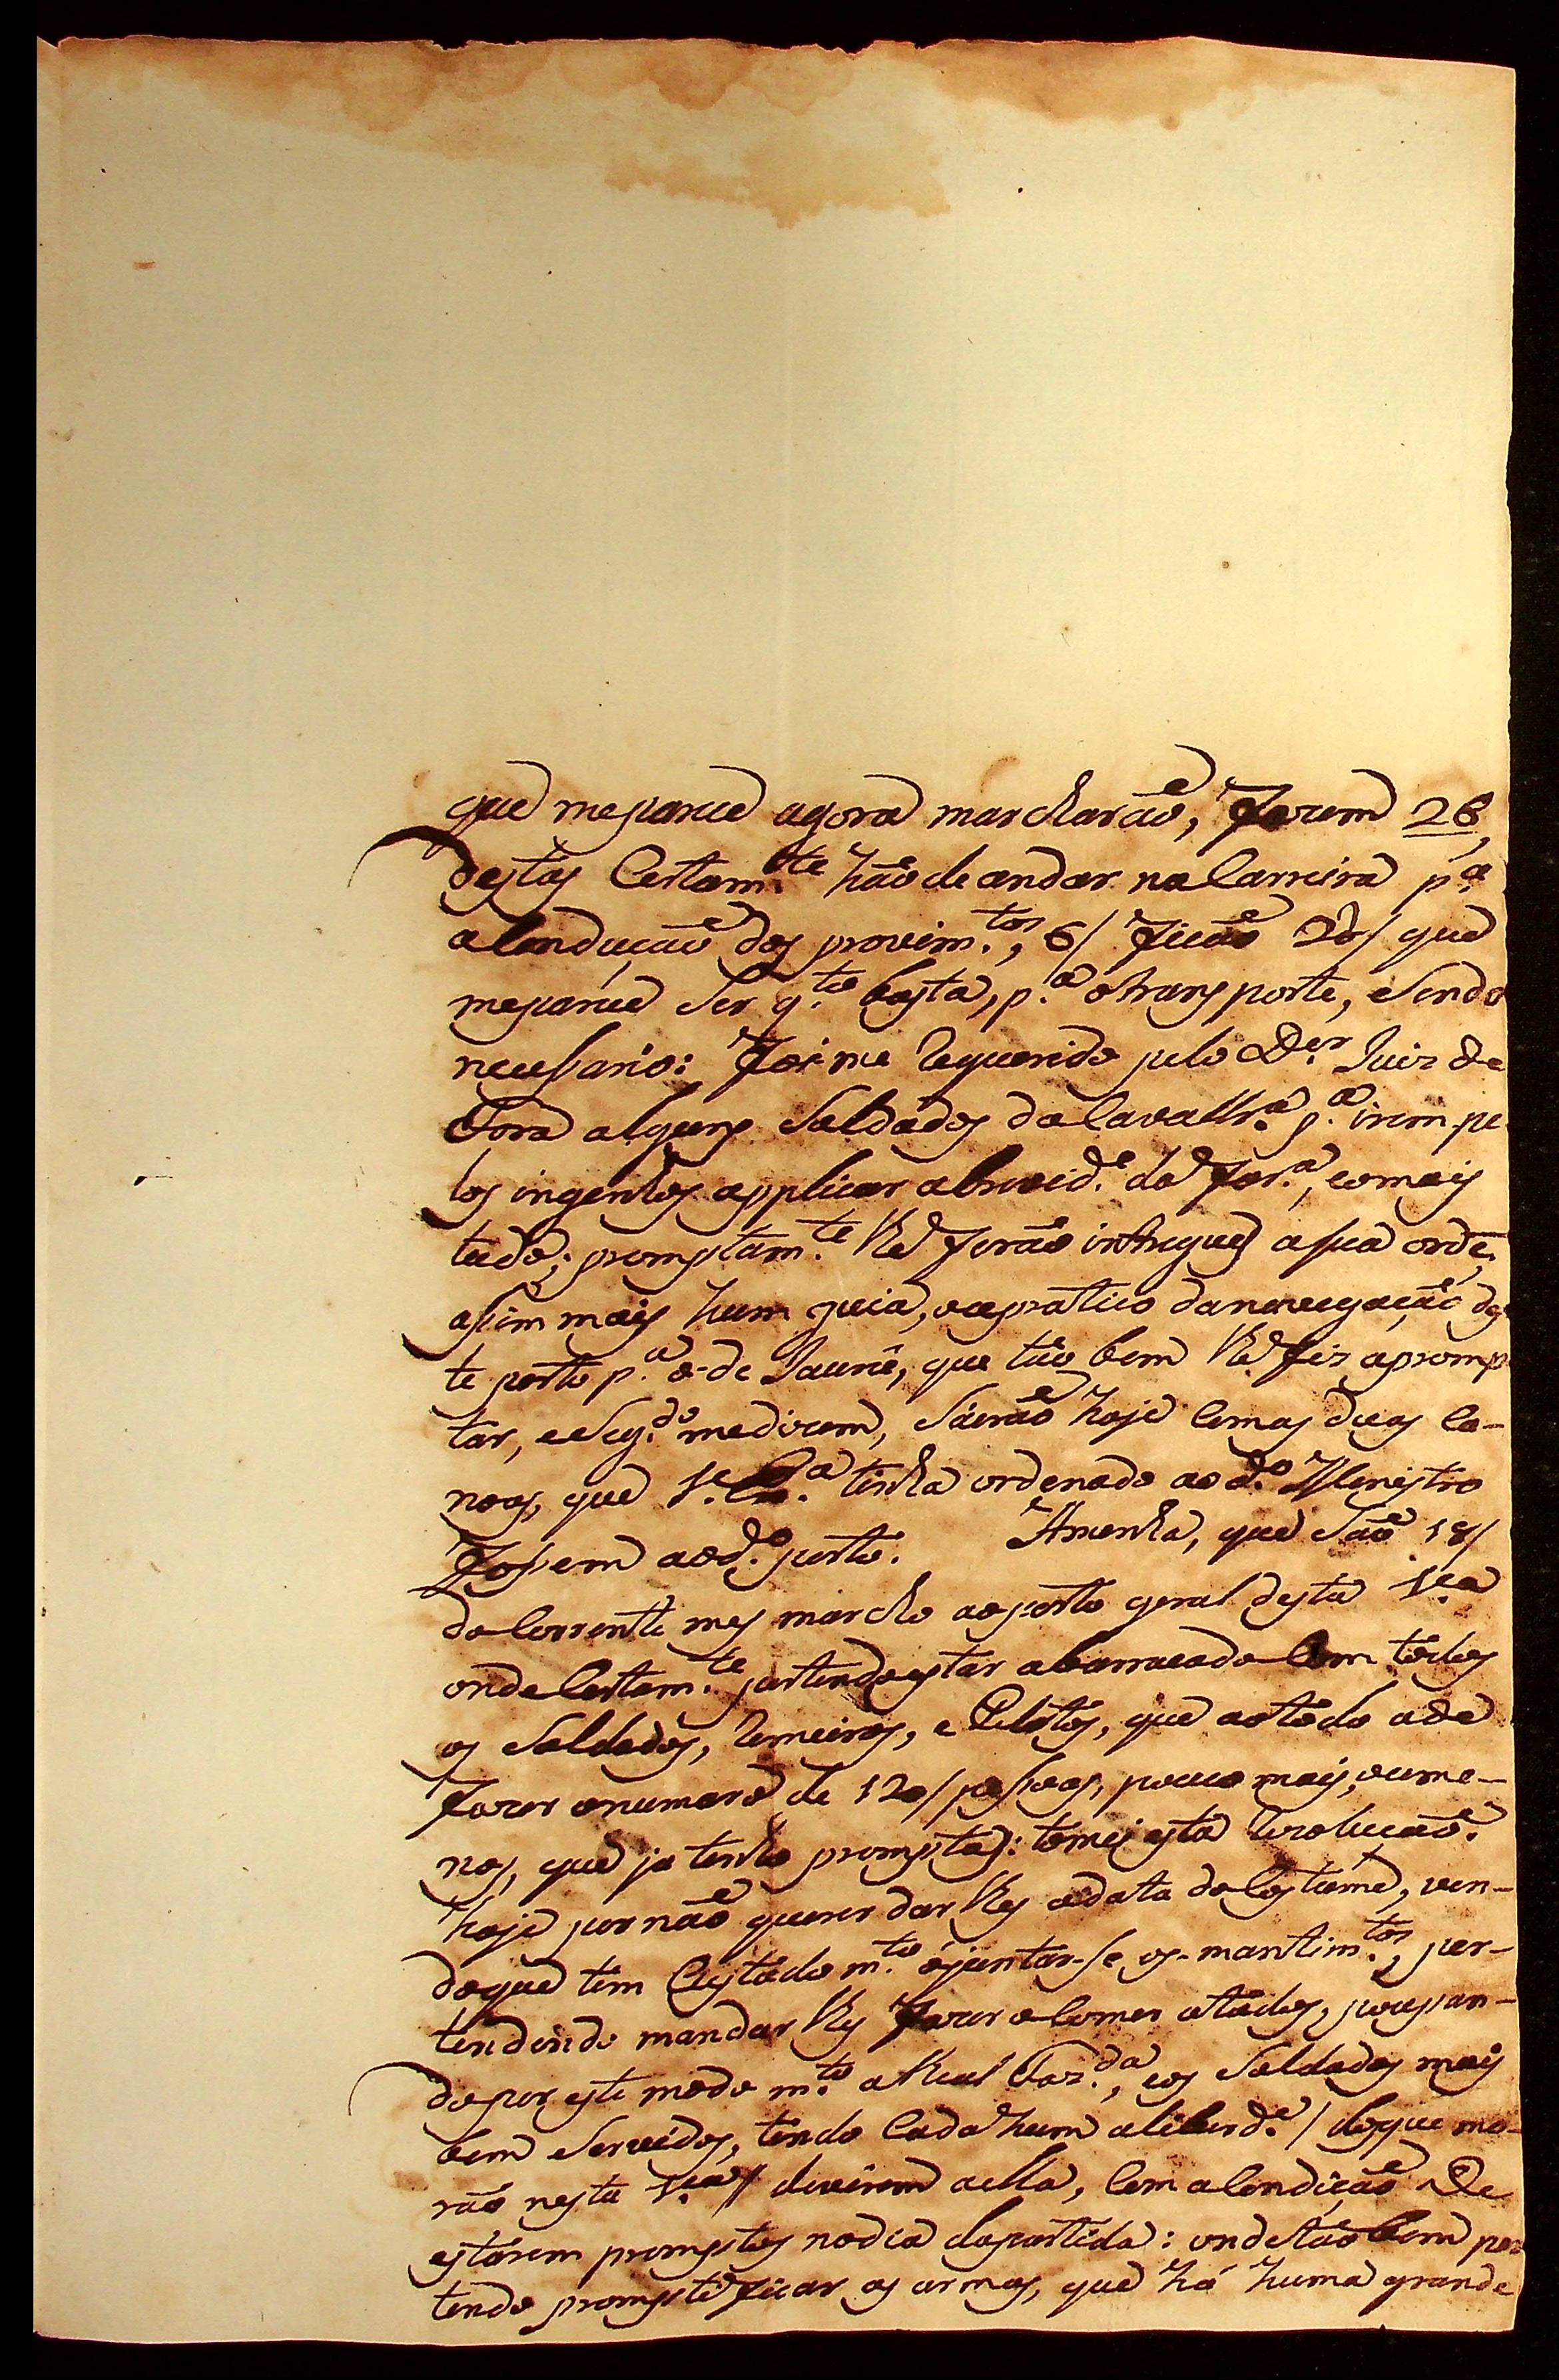 que meparece agora marcharaõ, Forem 26,
destas Certam.te haõ de andar na Carreira p.a
a Condução dos provim.tos, 6/ Ficaõ 20/ que
meparece Ser q.to basta, p.a o transporte, e Sendo
necessario: Foi-me Requerido pelo D.or Juiz de
Fora alguns Soldados da Cavallr.a p.a irem pe-
los ingenhos applicar a brevid.e da Far.a, e o mais
tudo; promptam.te lhe Foraõ intregues a sua ordē,
assim mais hum guia, e o pratico da navegação des-
te porto p.a o de Jaurú, que taõ bem lhe Fiz apromp-
tar, e Seg.do me dicem, Sáeraõ hoje Com as duas Ca-
noas, que V. Ex.a tinha ordenado ao d.o Menistro
Fossem ao d.o porto. Amenhã, que Saõ 18/
do Corrente mes marcho ao porto geral desta V.a
onde Certam.te pertendo estar abarracado Com todos
os Soldados, Remeiros, e Pilotos, que ao todo a de
Fazer o numaro de 120/ pessoas, pouco mais, ou me-
nos, que ja tenho promptas: tomei esta Rezolucaõ.
hoje por naõ querer dar lhes a data do Costume, ven-
do que tem Custado m.to a juntar-se os mantim.tos, per-
tendendo mandar lhes Fazer o Comer a todos, poupan-
do por este modo m.to a Real Faz.da, e os Soldados mais
bem Servidos, tendo Cada hum a liberd.e / dos que mo-
raõ nesta V.a / de virem a ella, Com a Condição De
estarem promptos no dia da partida: onde taõ bem per-
tendo prompteFicar as armas, que há huma grande